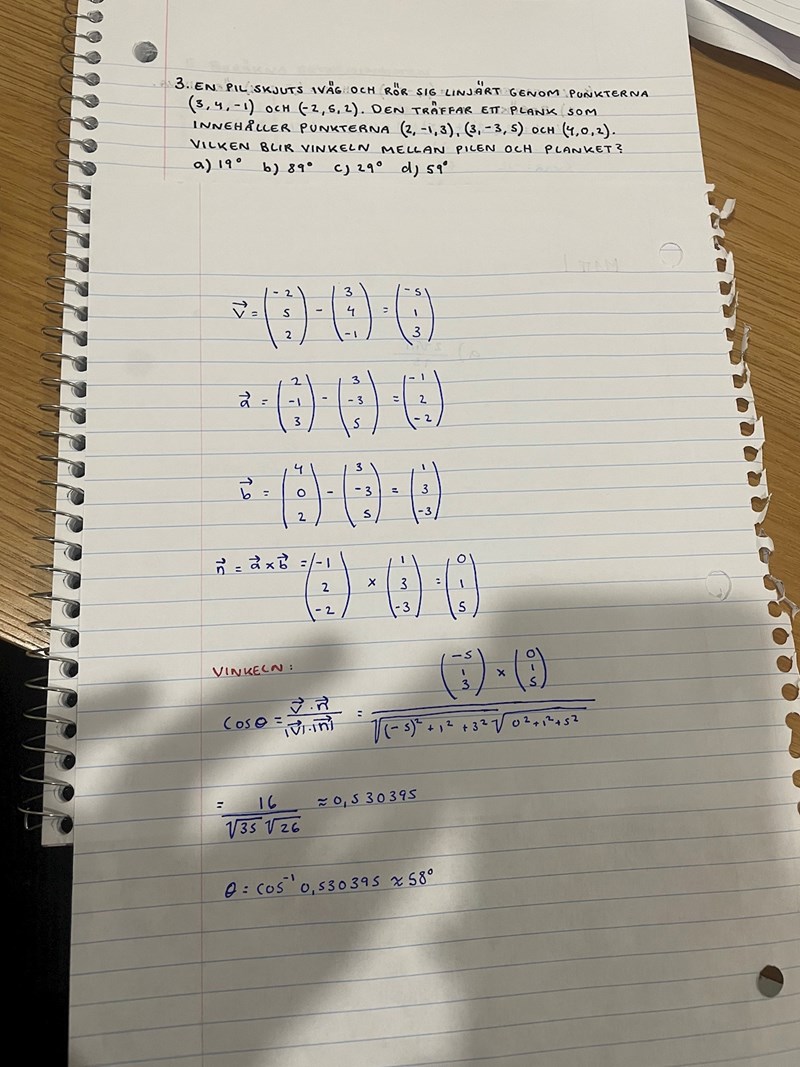 3. EN PIL SKJUTS IVÄG OCH RÖR SIG LINJÄRT GENOM PUNKTERNA
(3, 4, -1) OCH (-2, 5, 2). DEN TRÄFFAR ETT PLANK SOM
INNEHÅLLER PUNKTERNA (2, -1, 3), (3, -3, 5) OCH (4, 0, 2).
VILKEN BLIR VINKELN MELLAN PILEN OCH PLANKET?
a) 19° b) 89° c) 29° d) 59°
v⃗ = (-2 5 2) - (3 4 -1) = (-5 1 3)
a⃗ = (2 -1 3) - (3 -3 5) = (-1 2 -2)
b⃗ = (4 0 2) - (3 -3 5) = (1 3 -3)
n⃗ = a⃗ x b⃗ = (-1 2 -2) x (1 3 -3) = (0 1 5)
VINKELN:
cosθ = v⃗ · n⃗ / |v⃗| · |n⃗| = (-5 1 3) x (0 1 5) / √(-5)² + 1² + 3² √0² + 1² + 5²
= 16 / √35 √26 ≈ 0,530395
θ = cos⁻¹ 0,530395 ≈ 58°